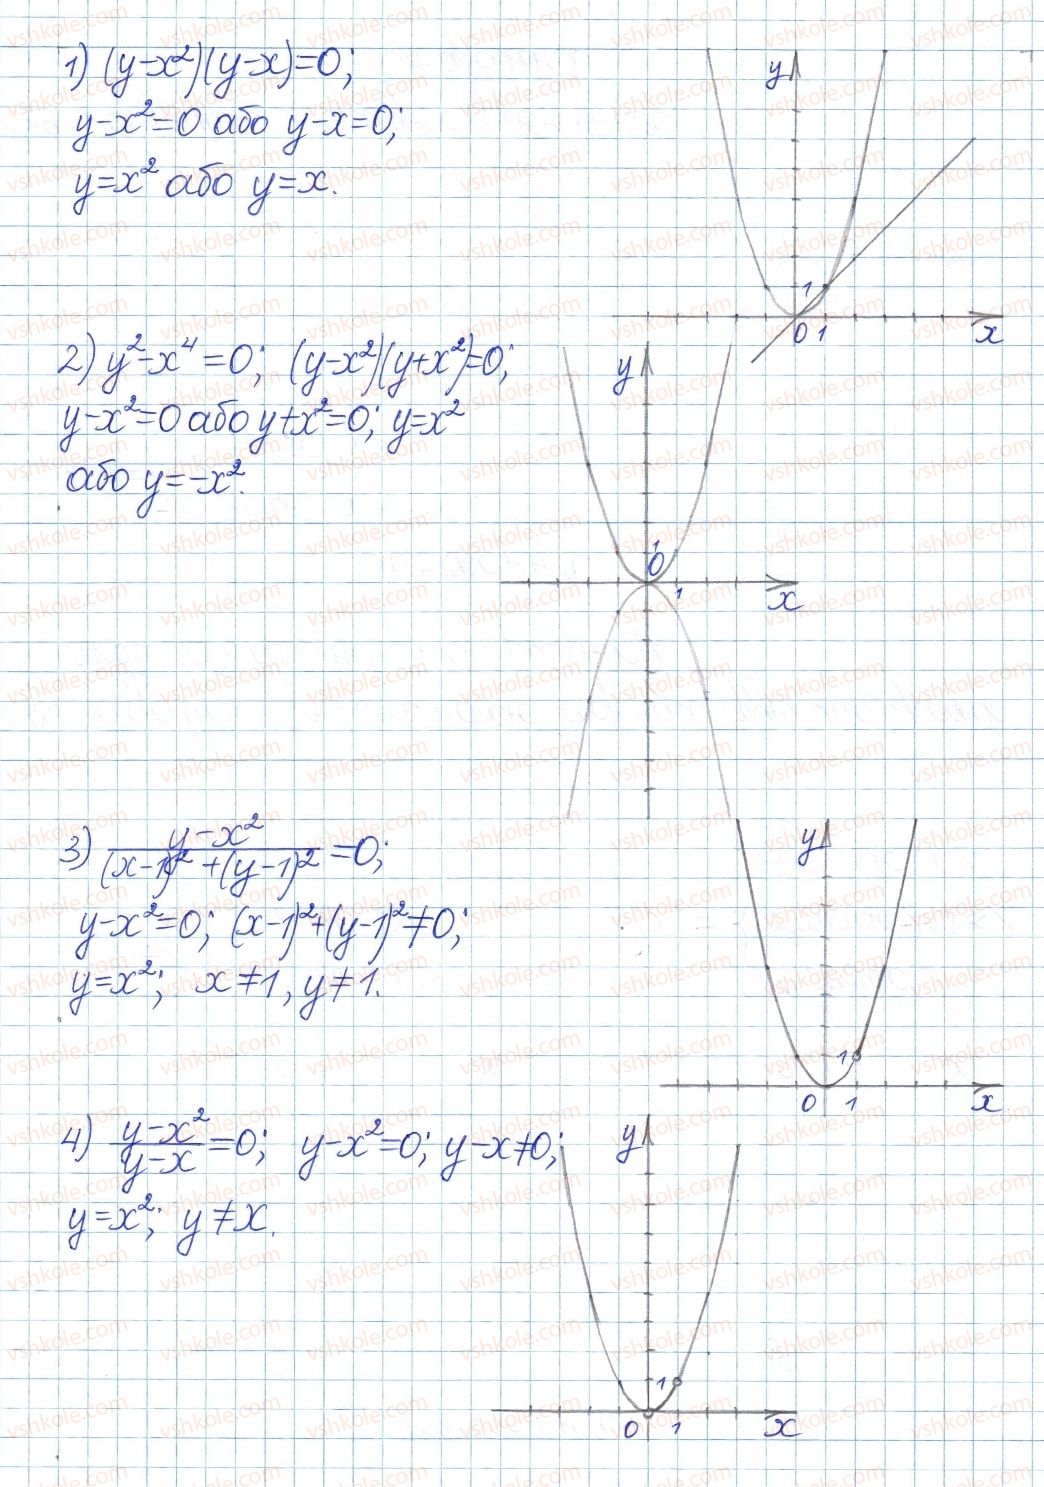 1) (y-x²)(y-x)=0;
y-x²=0 або y-x=0;
y=x² або y=x.
y
1
0 1
x
2) y²-x⁴=0; (y-x²)(y+x²)=0;
y-x²=0 або y+x²=0; y=x²
або y=-x².
y
1
0
1
x
3) (y-x²)/((x-1)²+(y-1)²)=0;
y-x²=0; (x-1)²+(y-1)²≠0;
y=x²; x≠1, y≠1.
y
1
0 1
x
4) (y-x²)/(y-x)=0; y-x²=0; y-x≠0;
y=x²; y≠x.
y
1
0 1
x
vshkole.com